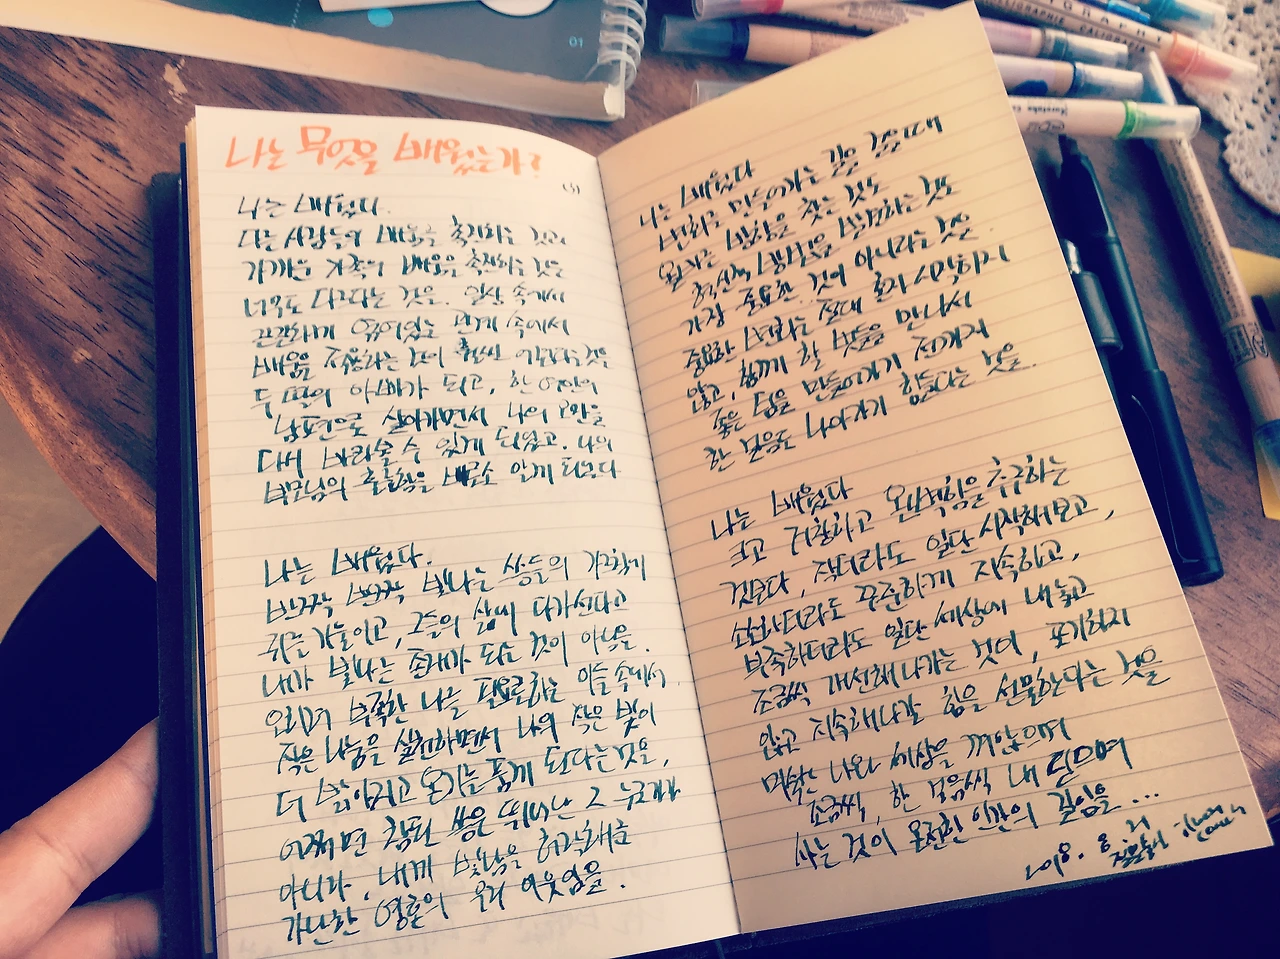 나는 무엇을 배웠는가?
(3)
나는 배웠다.
다른 사람들의 배움을 촉진하는 것과
가까운 가족의 배움을 촉진하는 것은
너무도 다르다는 것을. 일상 속에서
끈끈하게 엮여있는 관계 속에서
배움을 적용하는 것이 훨씬 어렵다는 것을
두 딸의 아빠가 되고, 한 여인의
남편으로 살아가면서 나의 만을
다시 바라볼 수 있게 되었고. 나의
부모님의 훌륭함을 비로소 알게 되었다
나는 배웠다.
반짝 반짝 빛나는 쌤들의 가르침에
귀를 기울이고, 그들의 삶에 다가선다고
내가 빛나는 존재가 되는 것이 아님을.
오히려 부족한 나를 필요로하는 이들 속에서
작은 나눔을 실천하면서 나의 작은 빛이
더 밝아지고 온기를 품게 된다는 것을,
어쩌면 참된 쌤은 뛰어난 그 누군가가
아니라, 내게 빛남을 허락해준
가난한 영혼의 우리 이웃임을.
나는 배웠다
변화를 만들어가는 길을 걸을 때
옳다는 방향을 찾는 것도
혁신적 방법을 발견하는 것도
가장 중요한 것이 아니라는 것을.
중요한 변화는 절대 혼자 시작하지
않고, 함께 할 벗들을 만나서
좋은 팀을 만들어가기 전까지
한 걸음도 나아가기 힘들다는 것을.
나는 배웠다
크고 거창하고 완벽함을 추구하는
것보다, 작더라도 일단 시작해보고,
소박하더라도 꾸준하게 지속하고,
부족하더라도 일단 세상에 내놓고
조금씩 개선해나가는 것이, 포기하지
않고 지속해나갈 힘을 선물한다는 것을
미숙한 나와 세상을 껴안으며
조금씩, 한 걸음씩 내 딛으며
사는 것이 온전한 인간의 길임을 ...
2018. 8. 21
01